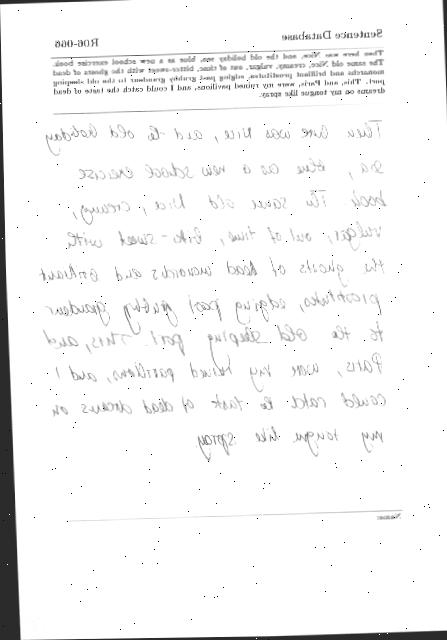 Sentence Database
R06-066
Then here was Nice, and the old holiday sea, blue as a new school exercise book.
The same old Nice, creamy, vulgar, out of time, bitter-sweet with the ghosts of dead
monarchs and brilliant prostitutes, edging past grubby grandeur to the old sleeping
port. This, and Paris, were my ruined pavilions, and I could catch the taste of dead
dreams on my tongue like spray.
Then here was Nice, and the old holiday
sea, blue as a new school exercise
book. The same old Nice, creamy,
vulgar, out of time, bitter-sweet with
the ghosts of dead monarchs and brilliant
prostitutes, edging past grubby grandeur
to the old sleeping port. This, and
Paris, were my ruined pavilions, and I
could catch the taste of dead dreams on
my tongue like spray
Name: